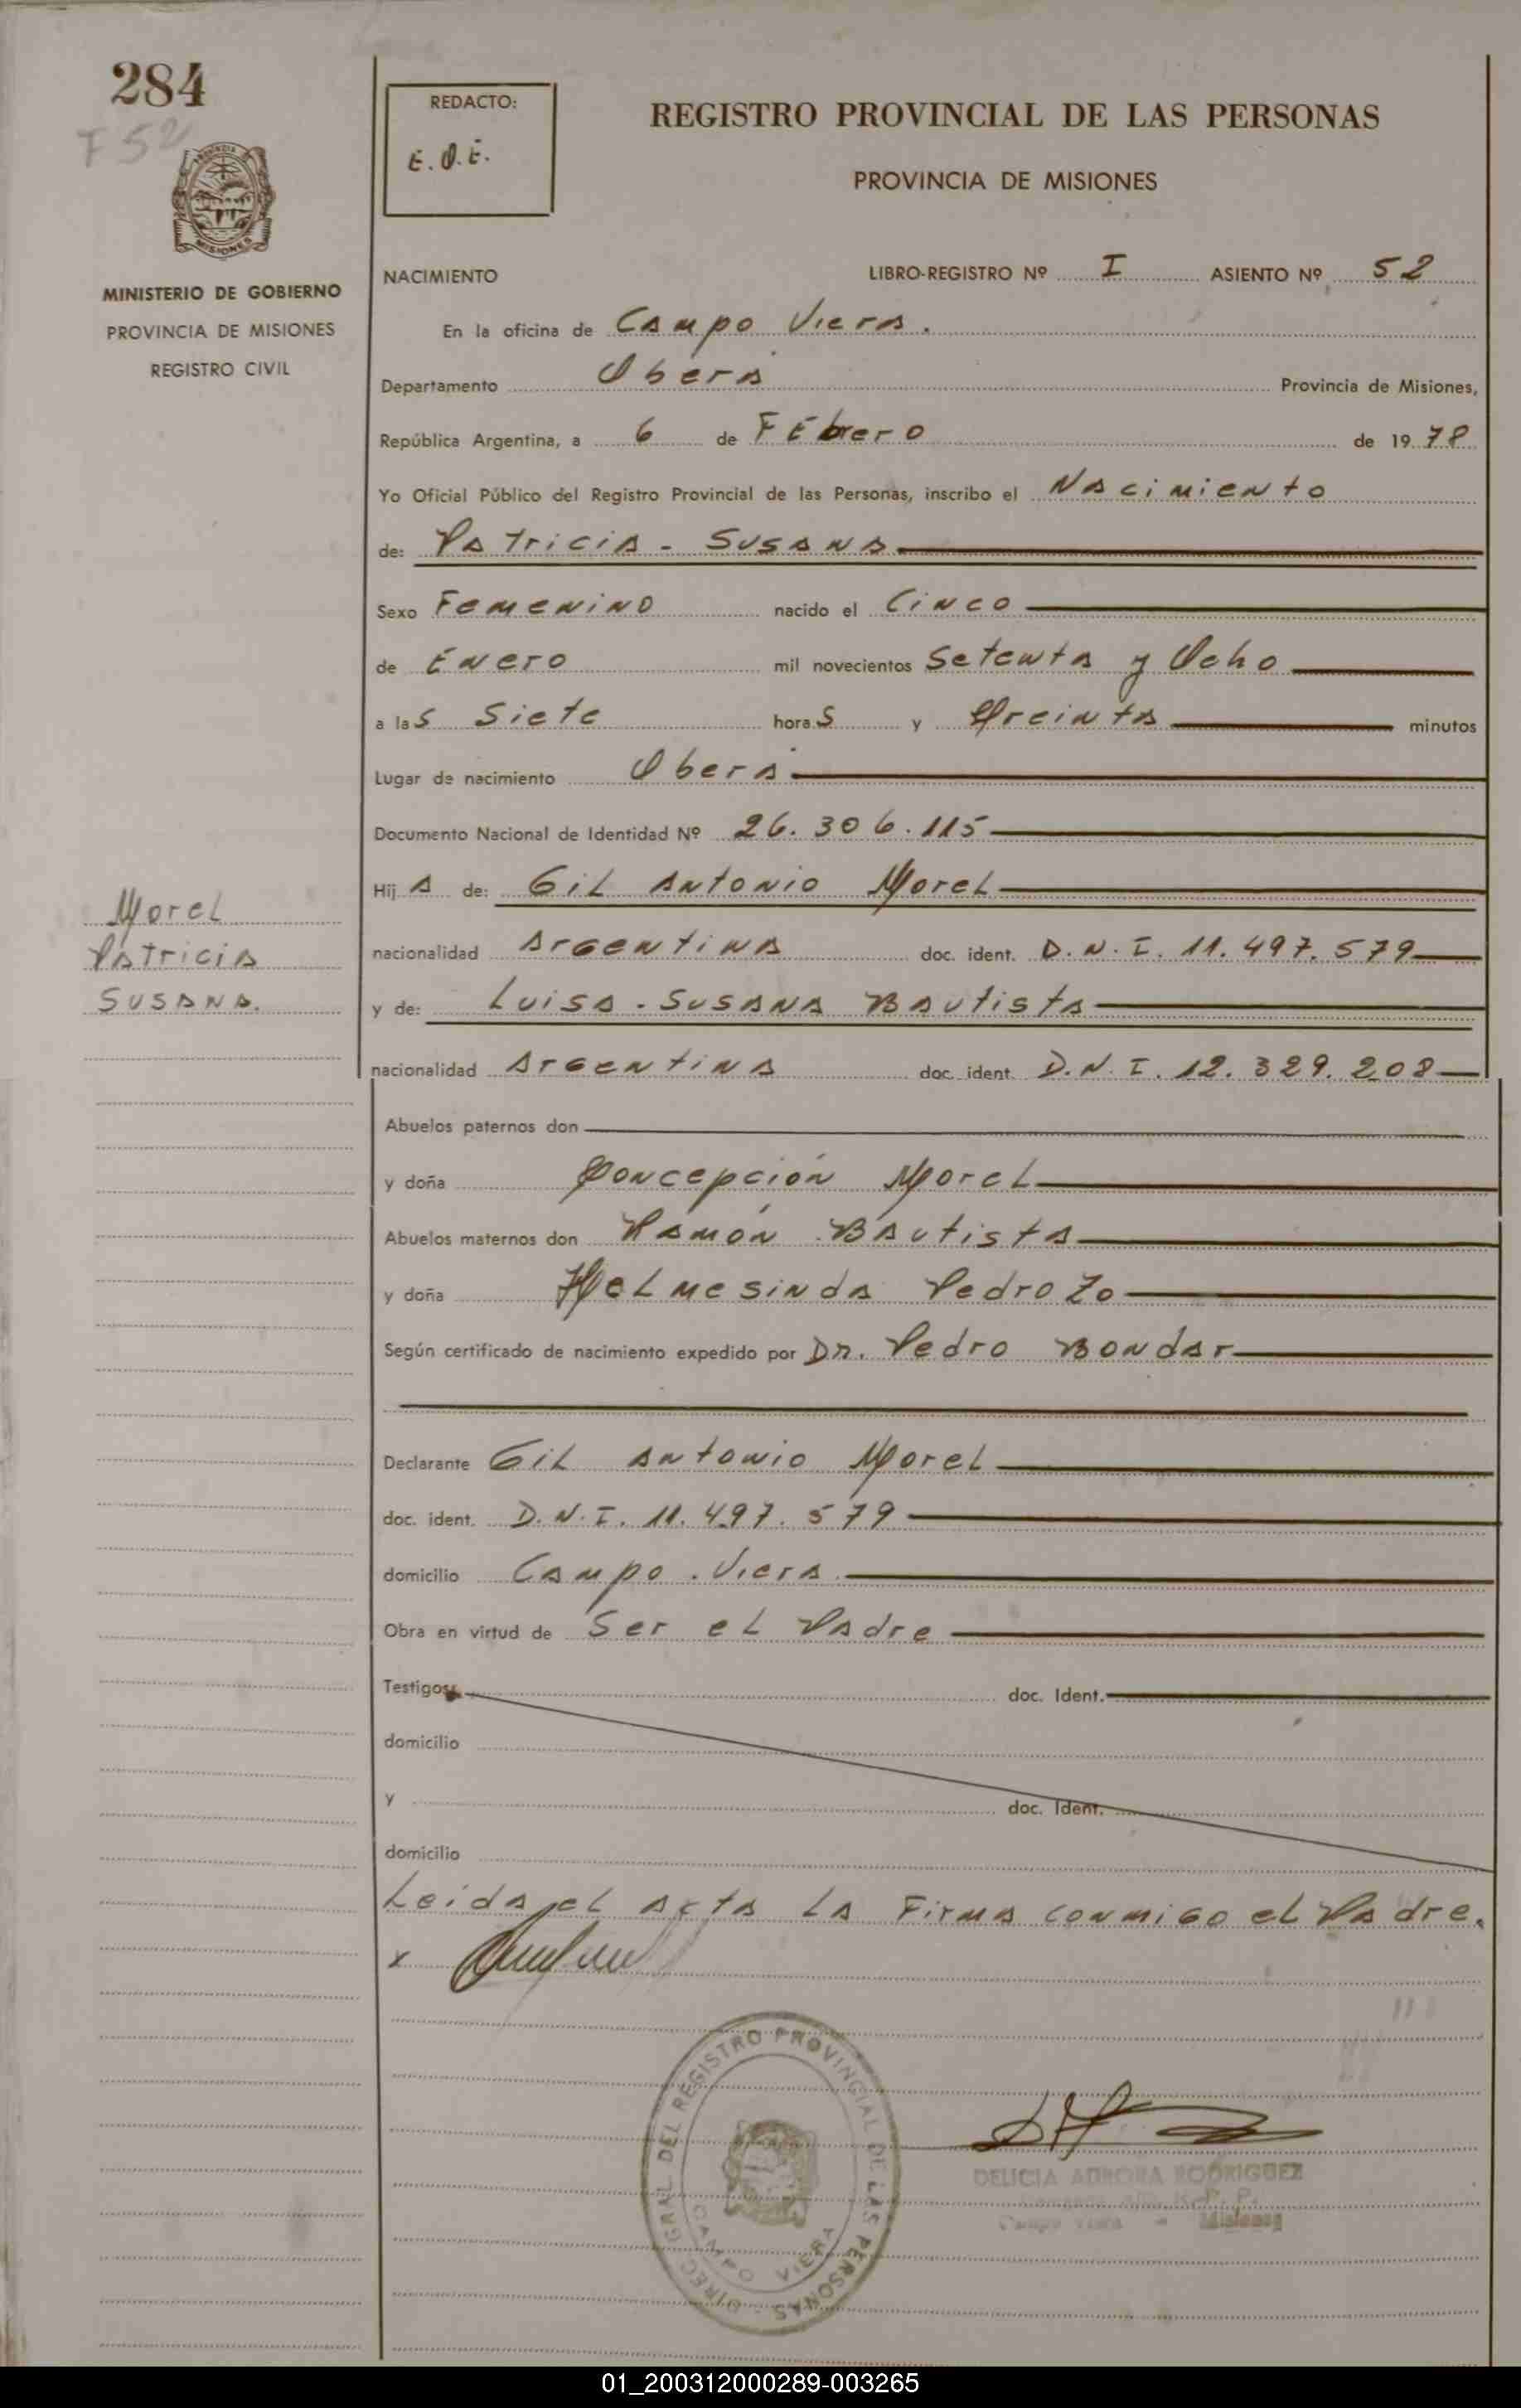 284
F 52
REDACTO:
E.O.E.
REGISTRO PROVINCIAL DE LAS PERSONAS
PROVINCIA DE MISIONES
PROVINCIA
MISIONES
MINISTERIO DE GOBIERNO
PROVINCIA DE MISIONES
REGISTRO CIVIL
NACIMIENTO
LIBRO-REGISTRO Nº I ASIENTO Nº 52
En la oficina de Campo Viera.
Departamento Oberá Provincia de Misiones,
República Argentina, a 6 de Febrero de 1978
Yo Oficial Público del Registro Provincial de las Personas, inscribo el Nacimiento
de: Patricia - Susana
Sexo Femenino nacido el Cinco
de Enero mil novecientos Setenta y Ocho
a las Siete horas y Treinta minutos
Lugar de nacimiento Oberá
Documento Nacional de Identidad Nº 26.306.115
Hija de: Gil Antonio Morel
nacionalidad Argentina doc. ident. D.N.I. 11.497.579
y de: Luisa - Susana Bautista
nacionalidad Argentina doc. ident. D.N.I. 12.329.208
Morel
Patricia
Susana.
Abuelos paternos don
y doña Concepción Morel
Abuelos maternos don Ramón Bautista
y doña Helmesinda Pedrozo
Según certificado de nacimiento expedido por Dr. Pedro Bondar
Declarante Gil Antonio Morel
doc. ident. D.N.I. 11.497.579
domicilio Campo. Viera
Obra en virtud de Ser el Padre
Testigos doc. Ident.
domicilio
y doc. Ident.
domicilio
Leida el acta la Firma conmigo el Padre.
x
DIREC. GRAL. DEL REGISTRO PROVINCIAL DE LAS PERSONAS
CAMPO VIERA
DELICIA AURORA RODRIGUEZ
R. P. P.
Campo Viera - Misiones
01_200312000289-003265